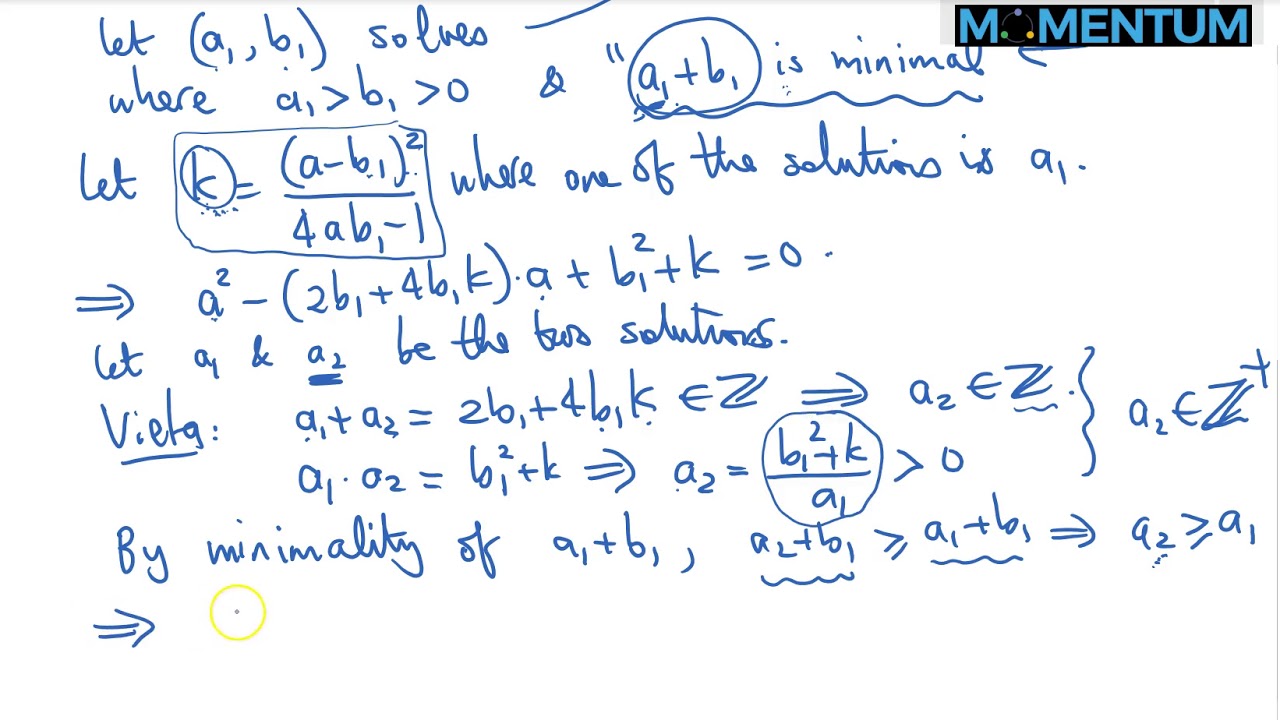 MOMENTUM
let (a₁, b₁) solves
where a₁ > b₁ > 0 & "a₁+b₁ is minimal
Let k = (a-b₁)²/(4ab₁-1) where one of the solutions is a₁.
⇒ a² - (2b₁+4b₁k)·a + b₁²+k = 0.
let a₁ & a₂ be the two solutions.
Vieta: a₁+a₂ = 2b₁+4b₁k ∈ ℤ ⇒ a₂ ∈ ℤ. } a₂ ∈ ℤ⁺
a₁·a₂ = b₁²+k ⇒ a₂ = (b₁²+k)/a₁ > 0
By minimality of a₁+b₁, a₂+b₁ ⩾ a₁+b₁ ⇒ a₂ ⩾ a₁
⇒